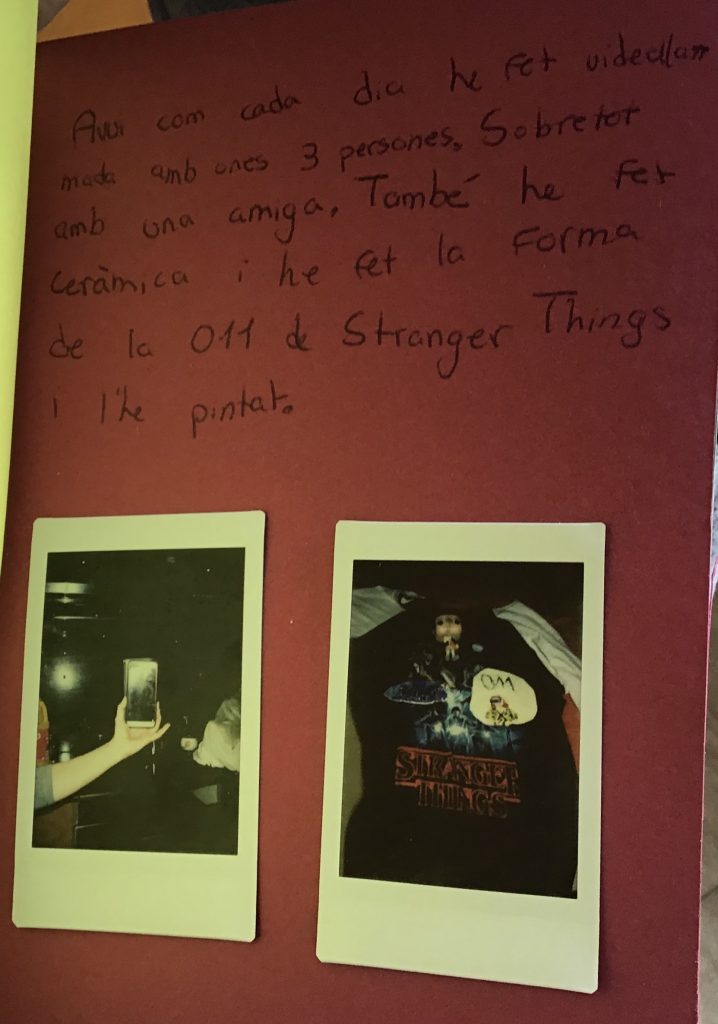 Avui com cada dia he fet videollam
mada amb unes 3 persones. Sobretot
amb una amiga. També he fet
ceràmica i he fet la forma
de la 011 de Stranger Things
i l'he pintat.
011
STRANGER
THINGS